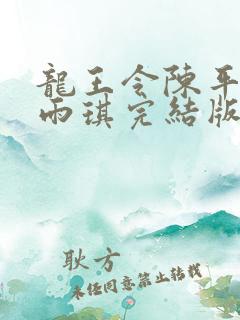 龍王令陳平
雨琪完結版
耿方
未經同意禁止轉載